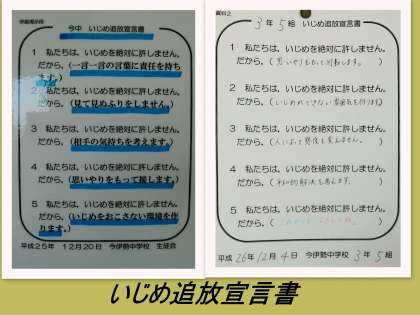 学級掲示用
今中 いじめ追放宣言書
1 私たちは、いじめを絶対に許しません。
だから、(一言一言の言葉に責任を持ち
ます。)
2 私たちは、いじめを絶対に許しません。
だから、(見て見ぬふりをしません。)
3 私たちは、いじめを絶対に許しません。
だから、(相手の気持ちを考えます。)
4 私たちは、いじめを絶対に許しません。
だから、(思いやりをもって接します。)
5 私たちは、いじめを絶対に許しません。
だから、(いじめをおこさない環境を作
ります。)
平成25年 12月20日 今伊勢中学校 生徒会
資料2
3年5組 いじめ追放宣言書
1 私たちは、いじめを絶対に許しません。
だから、(思いやりをもって行動します。)
2 私たちは、いじめを絶対に許しません。
だから、(いじめができない雰囲気を作ります)
3 私たちは、いじめを絶対に許しません。
だから、(人によって態度を変えません。)
4 私たちは、いじめを絶対に許しません。
だから、(平和的解決を考えます。)
5 私たちは、いじめを絶対に許しません。
だから、( )
平成26年12月4日 今伊勢中学校 3年5組
いじめ追放宣言書